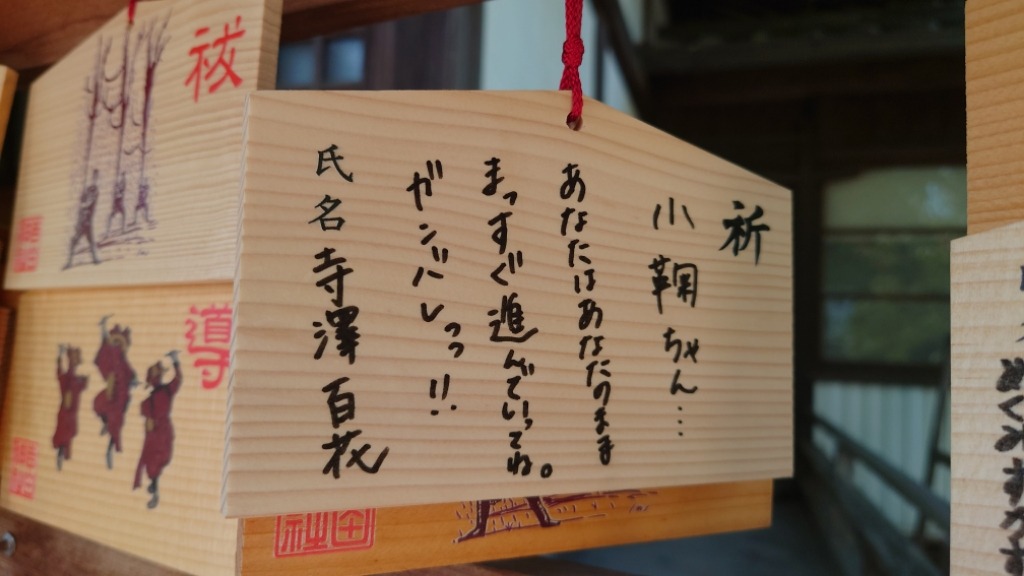 祈
小鞠ちゃん…
あなたはあなたのまま
まっすぐ進んでいってね。
ガンバレっっ!!
氏名 寺澤百花
祓
導